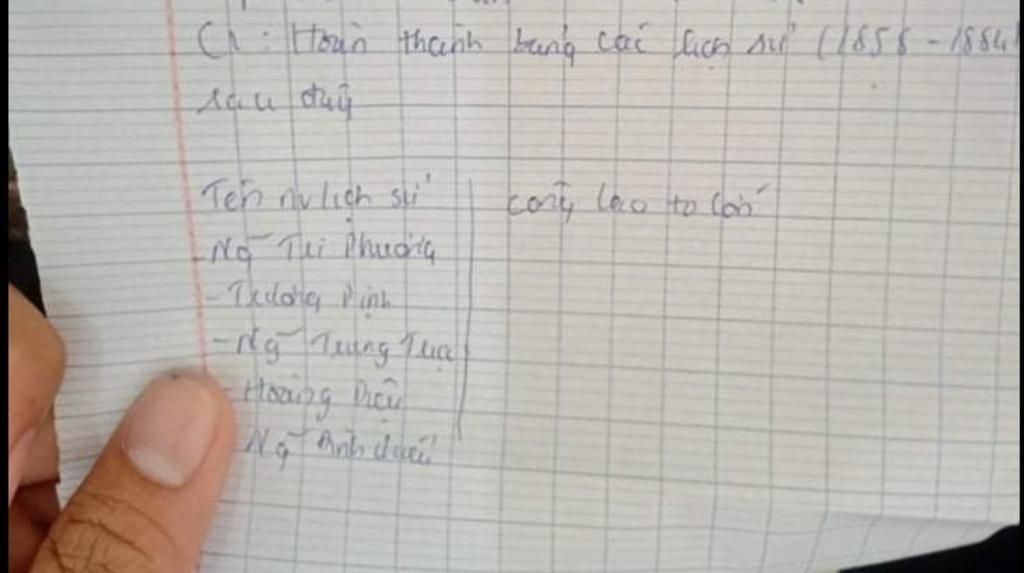 C1: Hoàn thành bảng các lịch sử (1858 - 1884)
sau đây
Tên nv lịch sử
công lao to lớn
- Ng~ Tri Phương
- Trương Định
- Ng~ Trung Trực
- Hoàng Diệu
Ng~